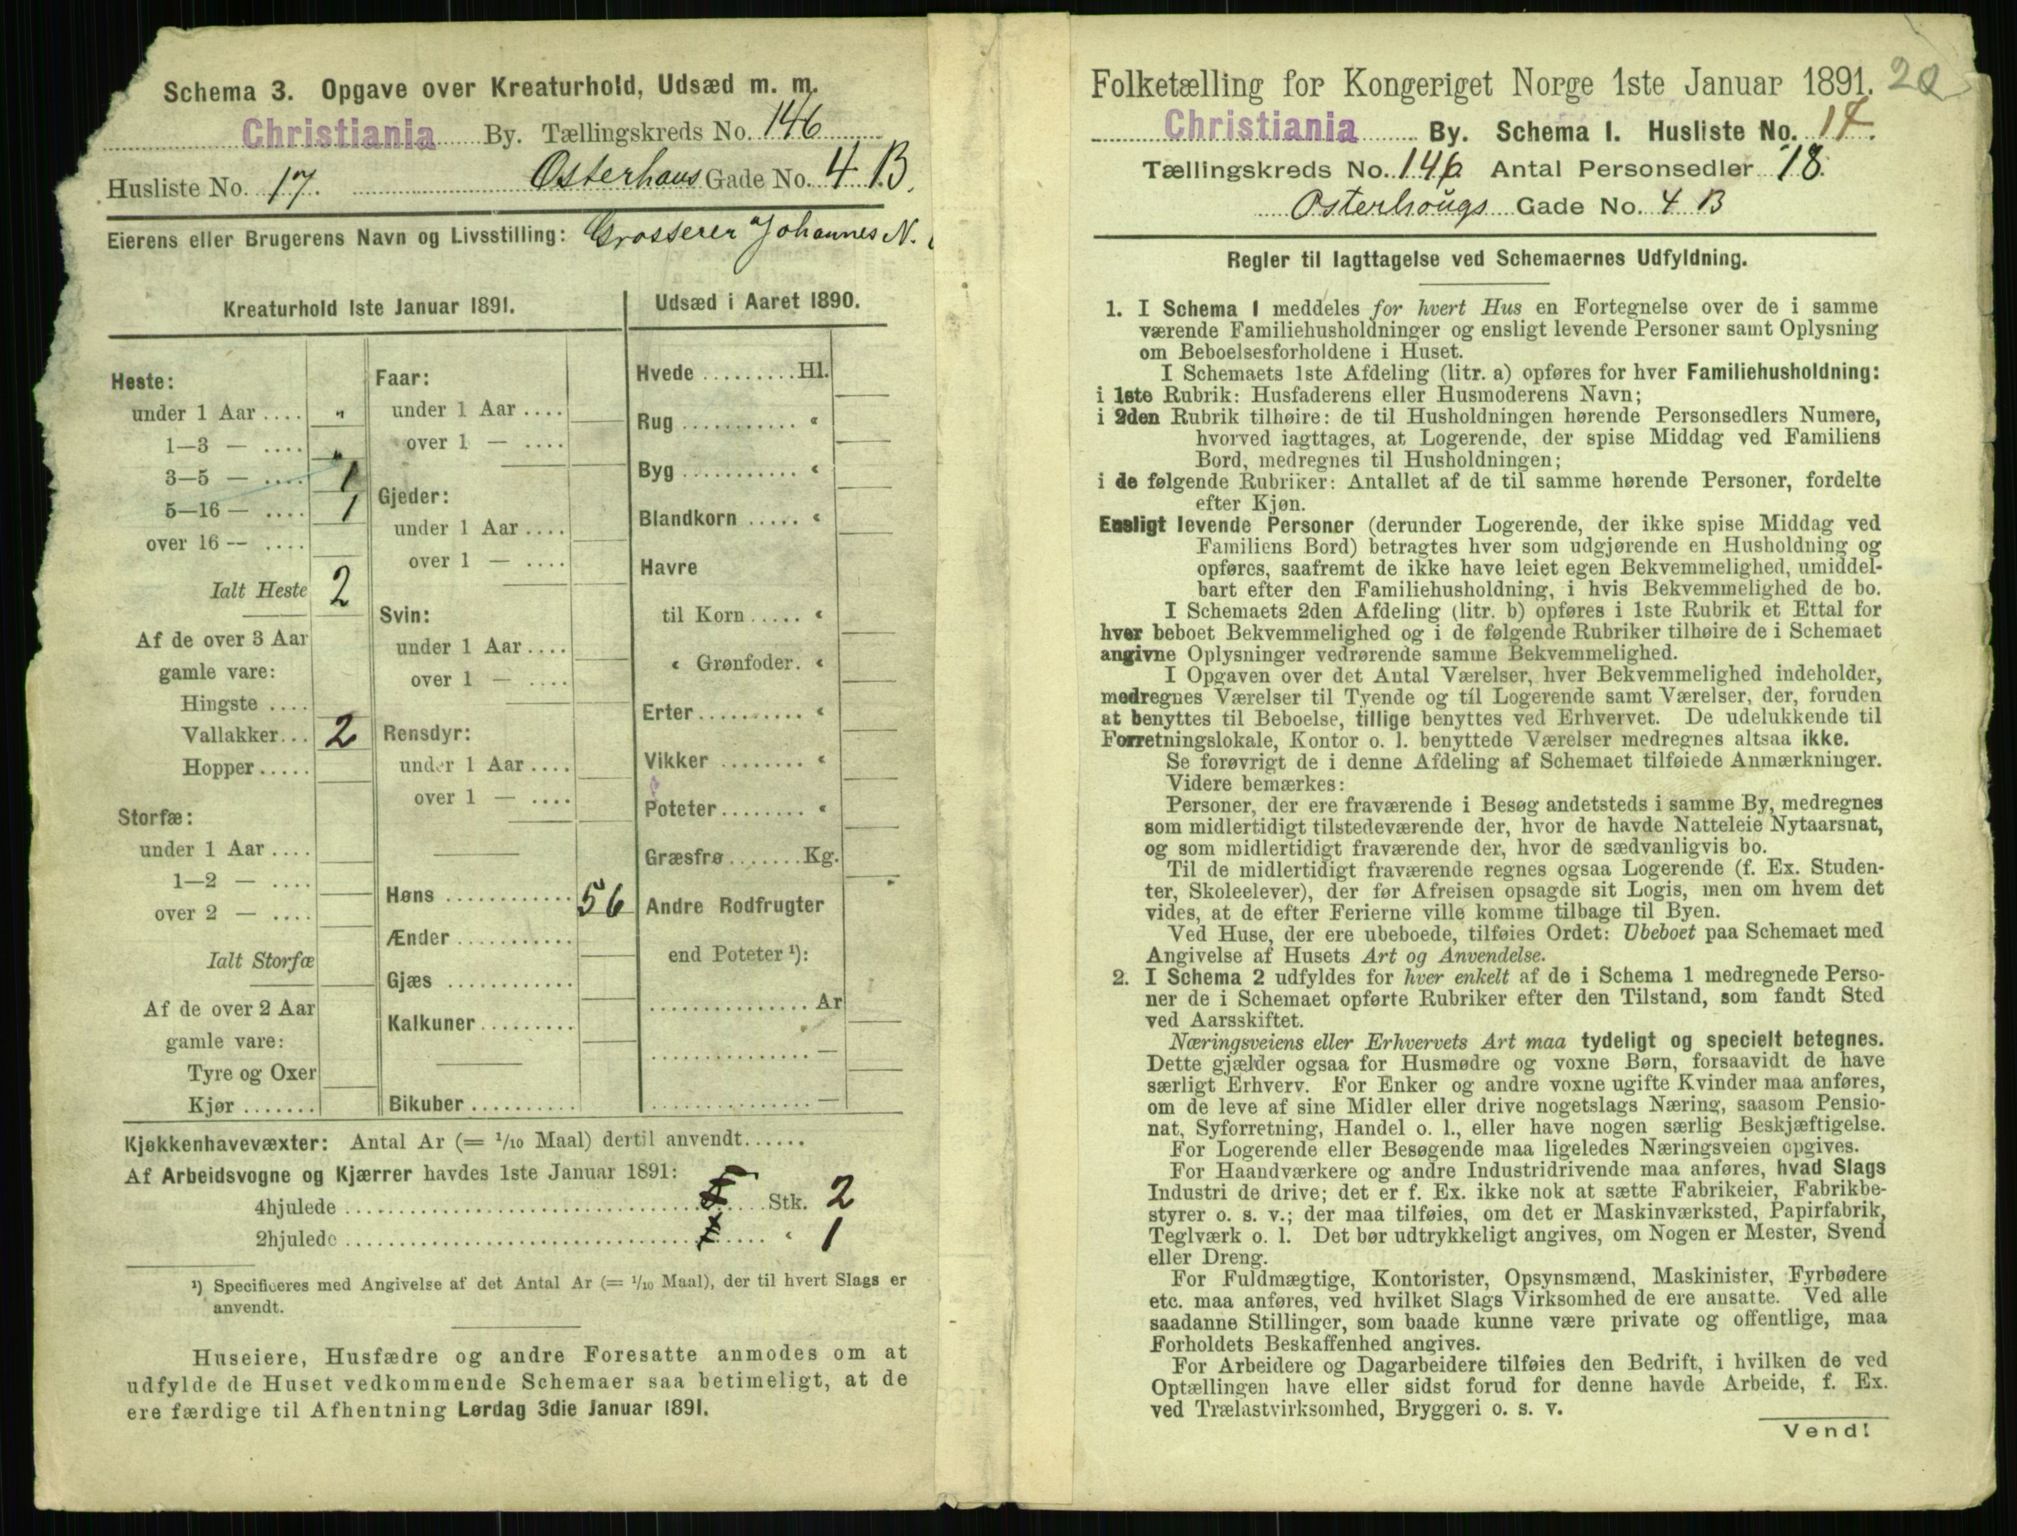 Schema 3. Opgave over Kreaturhold, Udsæd m. m.
Christiania By. Tællingskreds No. 146
Husliste No. 17. Osterhaus Gade No. 4 B.
Eierens eller Brugerens Navn og Livsstilling: Grosserer Johannes N.
Kreaturhold 1ste Januar 1891.
Heste:
under 1 Aar .... "
1—3 — .... "
3—5 — .... 1
5—16 — .... 1
over 16 — ....
Ialt Heste 2
Af de over 3 Aar
gamle vare:
Hingste ....
Vallakker... 2
Hopper.....
Storfæ:
under 1 Aar ....
1—2 — ....
over 2 — ....
Ialt Storfæ
Af de over 2 Aar
gamle vare:
Tyre og Oxer
Kjør .......
Faar:
under 1 Aar ....
over 1 — ....
Gjeder:
under 1 Aar ....
over 1 — ....
Svin:
under 1 Aar ....
over 1 — ....
Rensdyr:
under 1 Aar ....
over 1 — ....
Høns ............ 56
Ænder ...........
Gjæs ............
Kalkuner.........
Bikuber ..........
Udsæd i Aaret 1890.
Hvede .........Hl.
Rug ........... "
Byg ........... "
Blandkorn ..... "
Havre
til Korn ..... "
" Grønfoder. "
Erter.......... "
Vikker ........ "
Poteter........ "
Græsfrø .......Kg.
Andre Rodfrugter
end Poteter ¹):
...............Ar
............... —
............... —
Kjøkkenhavevæxter: Antal Ar (= 1/10 Maal) dertil anvendt......
Af Arbeidsvogne og Kjærrer havdes 1ste Januar 1891:
4hjulede ........ Stk. 2
2hjulede ........ " 1
¹) Specificeres med Angivelse af det Antal Ar (= 1/10 Maal), der til hvert Slags er
anvendt.
Huseiere, Husfædre og andre Foresatte anmodes om at
udfylde de Huset vedkommende Schemaer saa betimeligt, at de
ere færdige til Afhentning Lørdag 3die Januar 1891.
Folketælling for Kongeriget Norge 1ste Januar 1891. 20
Christiania By. Schema I. Husliste No. 17.
Tællingskreds No. 146 Antal Personsedler 18.
Osterhougs Gade No. 4 B
Regler til Iagttagelse ved Schemaernes Udfyldning.
1. I Schema I meddeles for hvert Hus en Fortegnelse over de i samme
værende Familiehusholdninger og ensligt levende Personer samt Oplysning
om Beboelsesforholdene i Huset.
I Schemaets 1ste Afdeling (litr. a) opføres for hver Familiehusholdning:
i 1ste Rubrik: Husfaderens eller Husmoderens Navn;
i 2den Rubrik tilhøire: de til Husholdningen hørende Personsedlers Numere,
hvorved iagttages, at Logerende, der spise Middag ved Familiens
Bord, medregnes til Husholdningen;
i de følgende Rubriker: Antallet af de til samme hørende Personer, fordelte
efter Kjøn.
Ensligt levende Personer (derunder Logerende, der ikke spise Middag ved
Familiens Bord) betragtes hver som udgjørende en Husholdning og
opføres, saafremt de ikke have leiet egen Bekvemmelighed, umiddel-
bart efter den Familiehusholdning, i hvis Bekvemmelighed de bo.
I Schemaets 2den Afdeling (litr. b) opføres i 1ste Rubrik et Ettal for
hver beboet Bekvemmelighed og i de følgende Rubriker tilhøire de i Schemaet
angivne Oplysninger vedrørende samme Bekvemmelighed.
I Opgaven over det Antal Værelser, hver Bekvemmelighed indeholder,
medregnes Værelser til Tyende og til Logerende samt Værelser, der, foruden
at benyttes til Beboelse, tillige benyttes ved Erhvervet. De udelukkende til
Forretningslokale, Kontor o. l. benyttede Værelser medregnes altsaa ikke.
Se forøvrigt de i denne Afdeling af Schemaet tilføiede Anmærkninger.
Videre bemærkes:
Personer, der ere fraværende i Besøg andetsteds i samme By, medregnes
som midlertidigt tilstedeværende der, hvor de havde Natteleie Nytaarsnat,
og som midlertidigt fraværende der, hvor de sædvanligvis bo.
Til de midlertidigt fraværende regnes ogsaa Logerende (f. Ex. Studen-
ter, Skoleelever), der før Afreisen opsagde sit Logis, men om hvem det
vides, at de efter Ferierne ville komme tilbage til Byen.
Ved Huse, der ere ubeboede, tilføies Ordet: Ubeboet paa Schemaet med
Angivelse af Husets Art og Anvendelse.
2. I Schema 2 udfyldes for hver enkelt af de i Schema 1 medregnede Perso-
ner de i Schemaet opførte Rubriker efter den Tilstand, som fandt Sted
ved Aarsskiftet.
Næringsveiens eller Erhvervets Art maa tydeligt og specielt betegnes.
Dette gjælder ogsaa for Husmødre og voxne Børn, forsaavidt de have
særligt Erhverv. For Enker og andre voxne ugifte Kvinder maa anføres,
om de leve af sine Midler eller drive nogetslags Næring, saasom Pensio-
nat, Syforretning, Handel o. l., eller have nogen særlig Beskjæftigelse.
For Logerende eller Besøgende maa ligeledes Næringsveien opgives.
For Haandværkere og andre Industridrivende maa anføres, hvad Slags
Industri de drive; det er f. Ex. ikke nok at sætte Fabrikeier, Fabrikbe-
styrer o. s. v.; der maa tilføies, om det er Maskinværksted, Papirfabrik,
Teglværk o. l. Det bør udtrykkeligt angives, om Nogen er Mester, Svend
eller Dreng.
For Fuldmægtige, Kontorister, Opsynsmænd, Maskinister, Fyrbødere
etc. maa anføres, ved hvilket Slags Virksomhed de ere ansatte. Ved alle
saadanne Stillinger, som baade kunne være private og offentlige, maa
Forholdets Beskaffenhed angives.
For Arbeidere og Dagarbeidere tilføies den Bedrift, i hvilken de ved
Optællingen have eller sidst forud for denne havde Arbeide, f. Ex.
ved Trælastvirksomhed, Bryggeri o. s. v.
Vend!